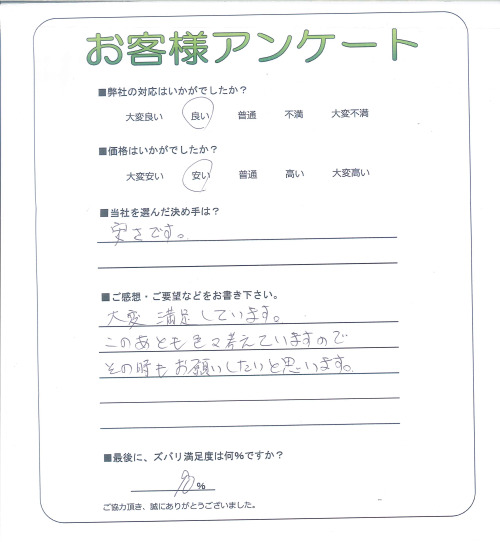 お客様アンケート
■弊社の対応はいかがでしたか？
大変良い 良い 普通 不満 大変不満
■価格はいかがでしたか？
大変安い 安い 普通 高い 大変高い
■当社を選んだ決め手は？
安さです。
■ご感想・ご要望などをお書き下さい。
大変満足しています。
このあとも色々考えていますので
その時もお願いしたいと思います。
■最後に、ズバリ満足度は何％ですか？
％
ご協力頂き、誠にありがとうございました。